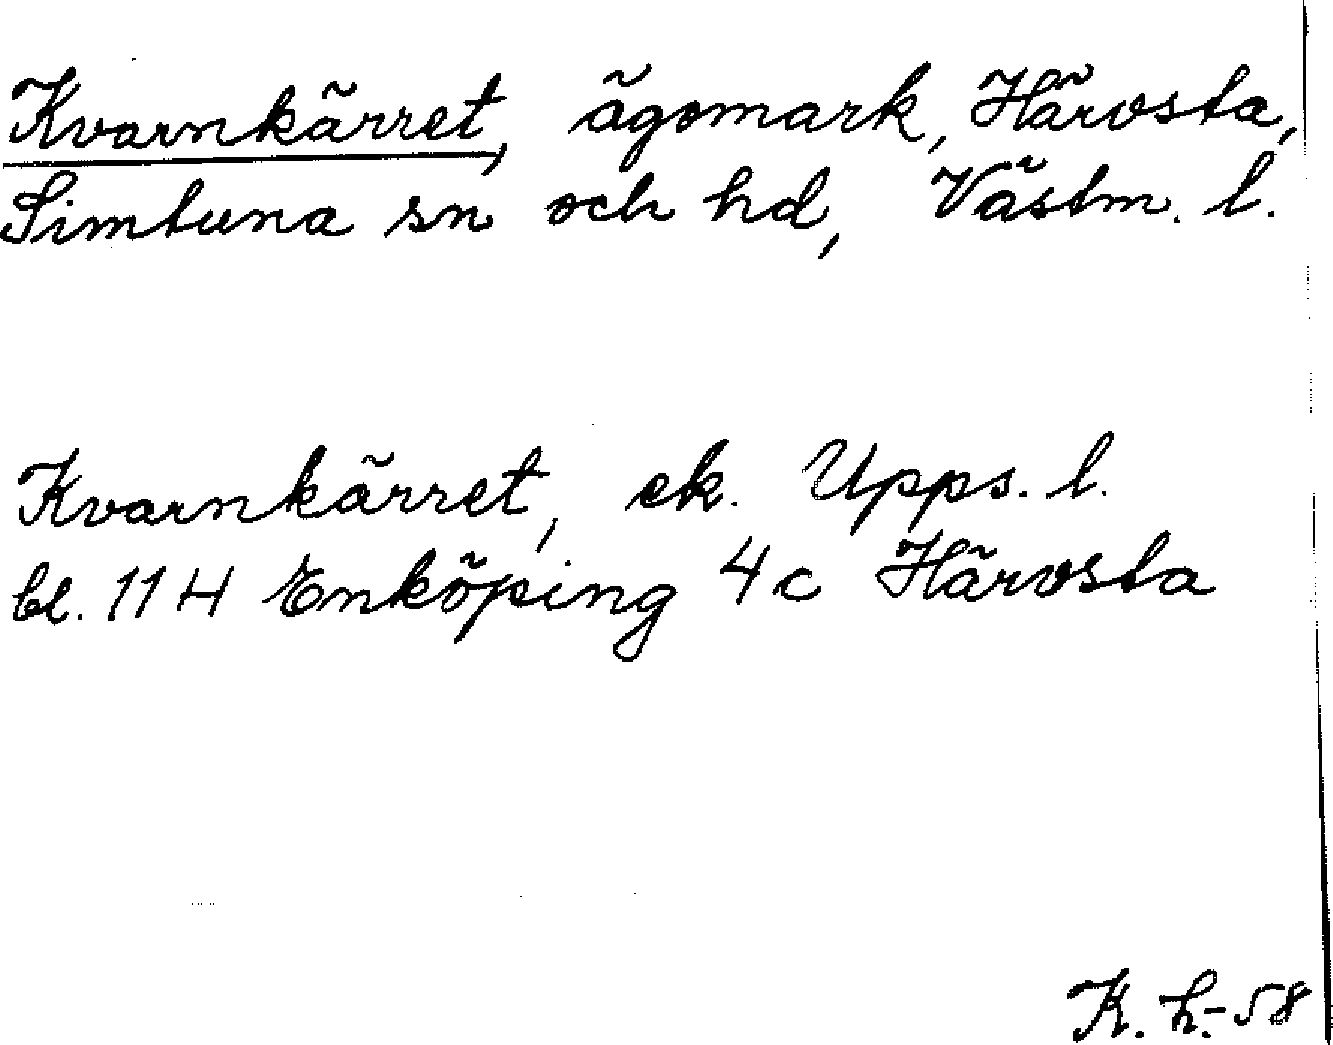 Kvarnkärret, ägomark, Härvsta,
Simtuna sn och hd, Västm. l.
Kvarnkärret, ek. Upps. l.
bl. 11 H Enköping 4 c Härvsta
K. h.-58